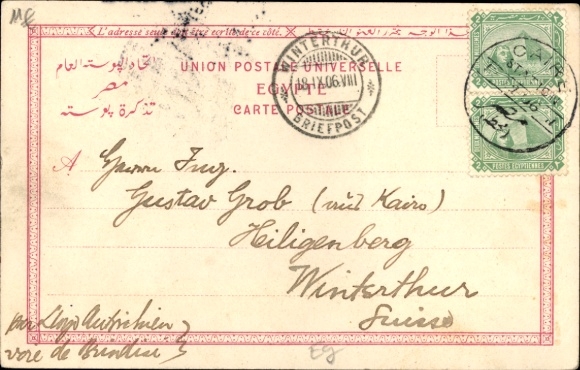 M
L'adresse seule doit être écrite de ce côté.
اتحاد البوستة العام
UNION POSTALE UNIVERSELLE
مصر
EGYPTE
تذكرة بوستة
CARTE POSTALE
WINTERTHUR
18.IX.06.VIII
BRIEFPOST
CAIRO
POSTES EGYPTIENNES
A Herrn Ing.
Gustav Grob (aus Kairo)
Heiligenberg
Winterthur
Suisse
per Lloyd Autrichien
voie de Brindisi
Eg